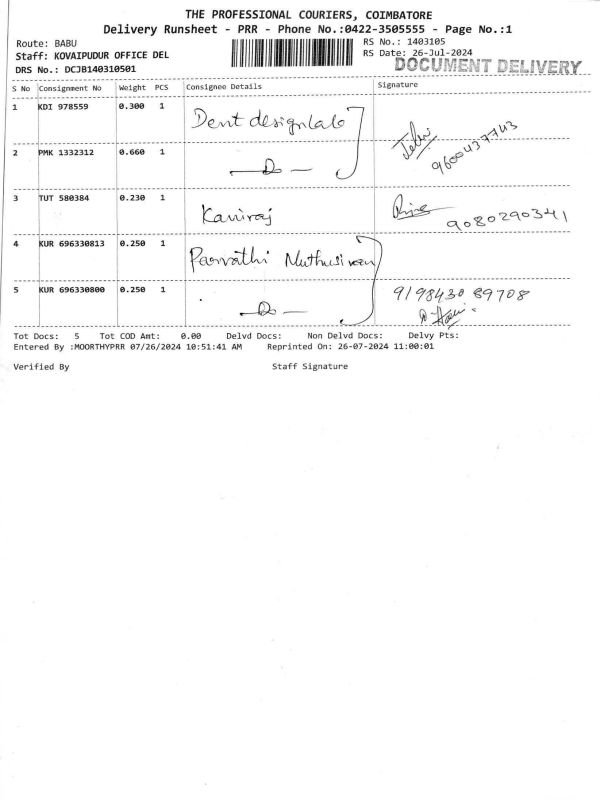 THE PROFESSIONAL COURIERS, COIMBATORE
Delivery Runsheet - PRR - Phone No.:0422-3505555 - Page No.:1
Route: BABU
RS No.: 1403105
Staff: KOVAIPUDUR OFFICE DEL
RS Date: 26-Jul-2024
DRS No.: DCJB140310501
DOCUMENT DELIVERY
S No Consignment No Weight PCS Consignee Details Signature
1 KDI 978559 0.300 1 Dent designlab
9600437743
2 PMK 1332312 0.660 1 — Do —
3 TUT 580384 0.230 1 Kaviraj
9080290341
4 KUR 696330813 0.250 1 Parvathi Muthusivan
5 KUR 696330800 0.250 1 — Do —
9198430 89708
Tot Docs: 5 Tot COD Amt: 0.00 Delvd Docs: Non Delvd Docs: Delvy Pts:
Entered By :MOORTHYPRR 07/26/2024 10:51:41 AM Reprinted On: 26-07-2024 11:00:01
Verified By Staff Signature